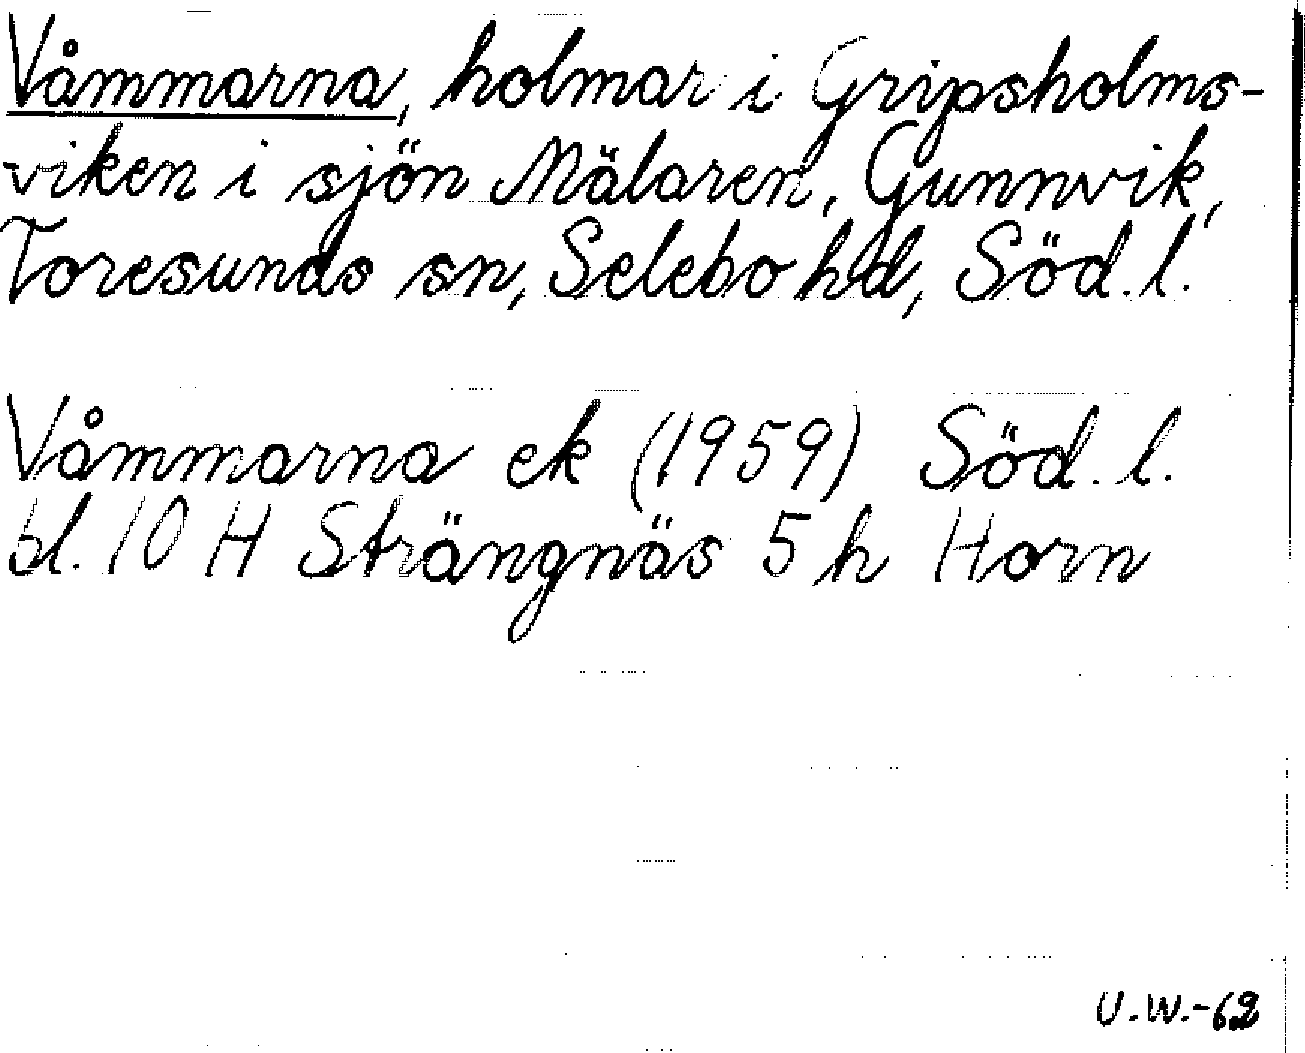 Våmmarna, holmar i Gripsholms-
viken i sjön Mälaren, Gunnvik,
Toresunds sn, Selebo hd, Söd. l.
Våmmarna ek (1959) Söd. l.
bl. 10 H Strängnäs 5 h Horn
U.W.-62